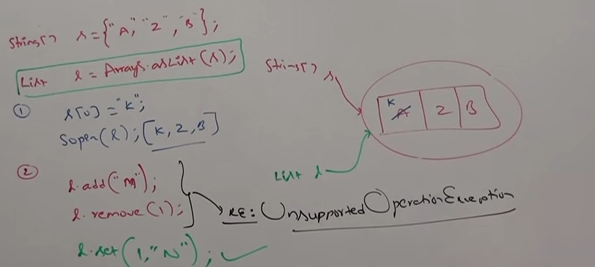 String[] s = {"A", "Z", "B"};
List l = Arrays.asList(s);
① s[0] = "K";
Sopln(l); [K, Z, B]
② l.add("M");
l.remove(1);
RE: UnsupportedOperationException
l.set(1, "N"); ✓
String[] s
K A Z B
List l